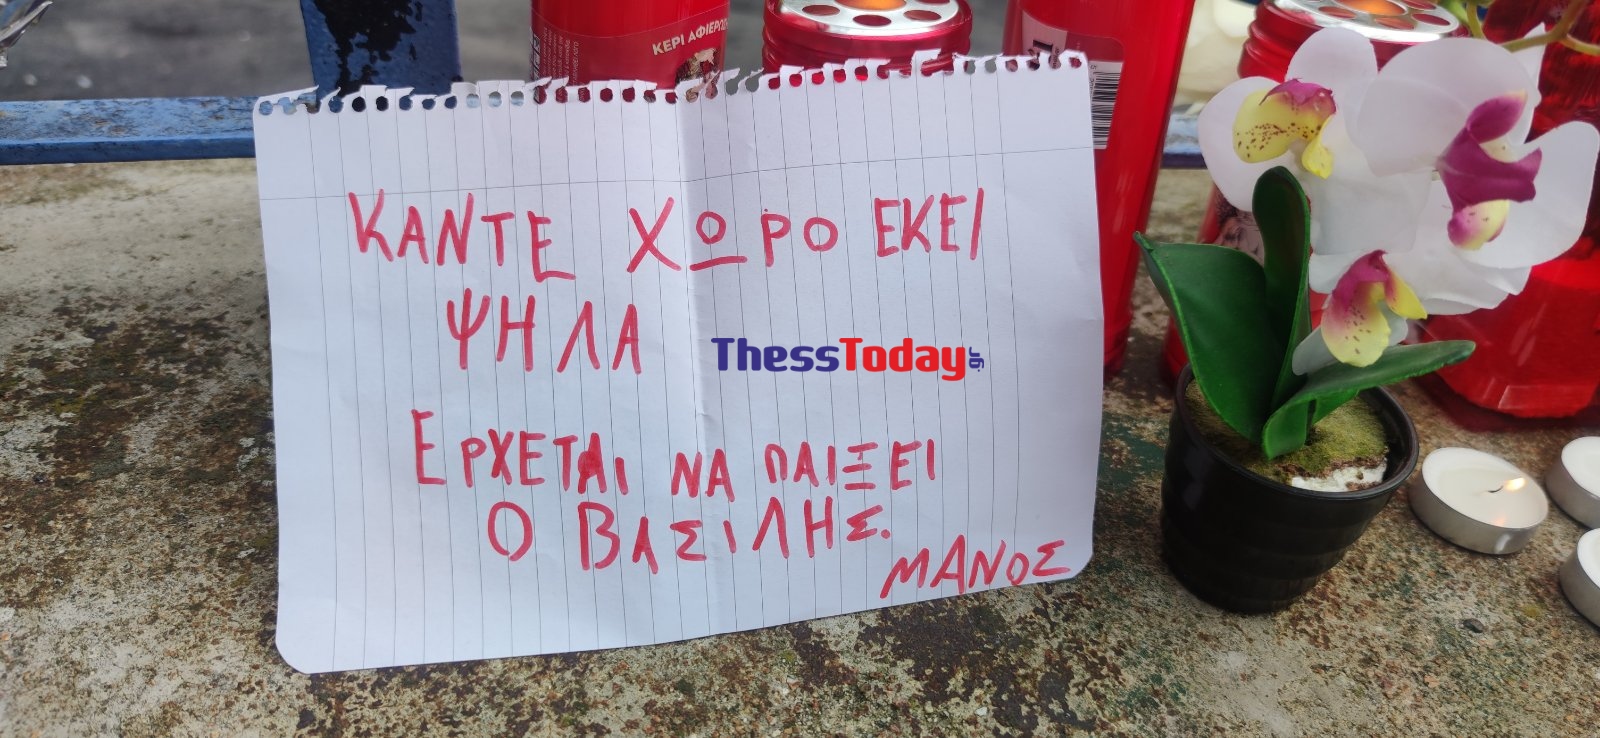 ΚΕΡΙ ΑΦΙΕΡΩΣ
ΚΑΝΤΕ ΧΩΡΟ ΕΚΕΙ
ΨΗΛΑ
ThessToday.gr
ΕΡΧΕΤΑΙ ΝΑ ΠΑΙΞΕΙ
Ο ΒΑΣΙΛΗΣ.
ΜΑΝΟΣ